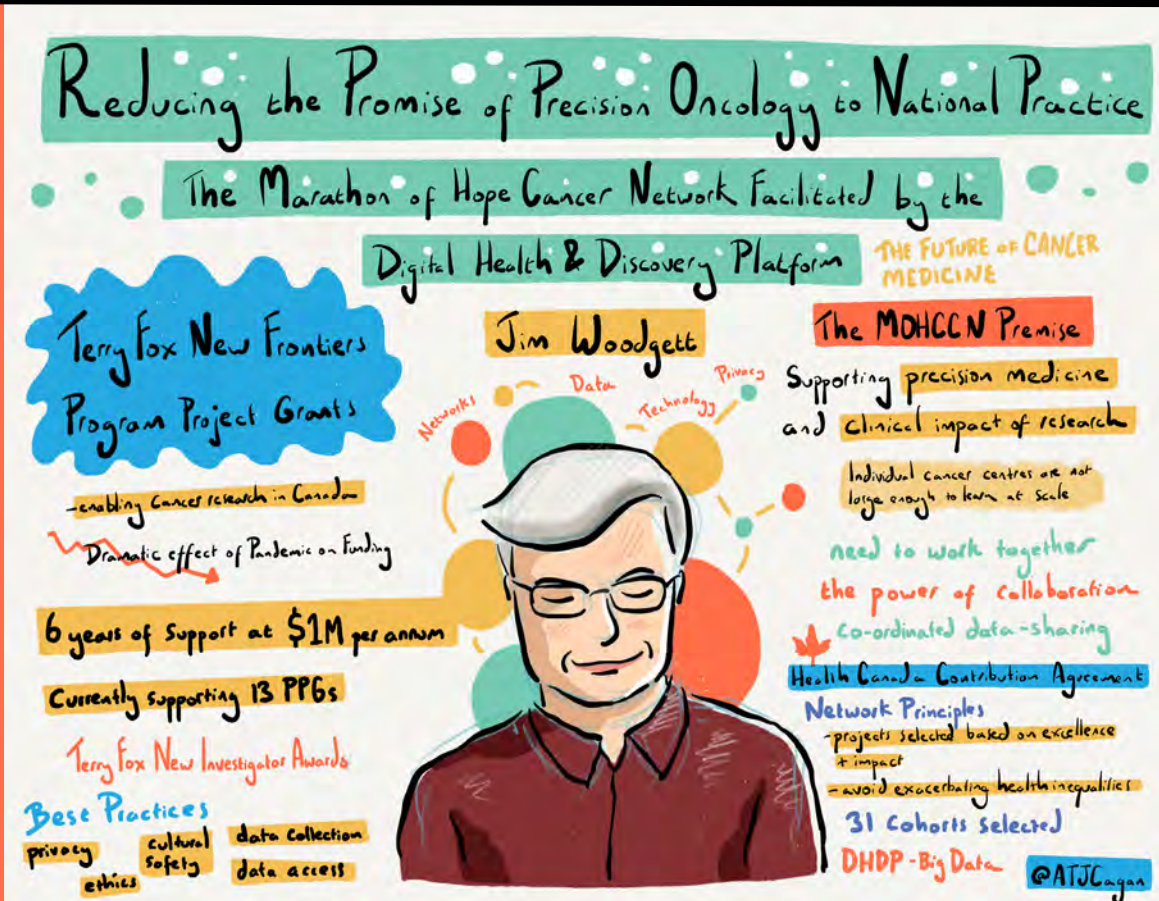 Reducing the Promise of Precision Oncology to National Practice
The Marathon of Hope Cancer Network Facilitated by the
Digital Health & Discovery Platform
THE FUTURE OF CANCER
MEDICINE
Terry Fox New Frontiers
Program Project Grants
- enabling Cancer research in Canada
Dramatic effect of Pandemic on Funding
6 years of Support at $1M per annum
Currently supporting 13 PPGs
Terry Fox New Investigator Awards
Best Practices
privacy
cultural
safety
data collection
ethics
data access
Jim Woodgett
Networks
Data
Technology
Privacy
The MOHCCN Premise
Supporting precision medicine
and clinical impact of research
Individual cancer centres are not
large enough to learn at scale
need to work together
the power of collaboration
co-ordinated data-sharing
Health Canada Contribution Agreement
Network Principles
- projects selected based on excellence
+ impact
- avoid exacerbating health inequalities
31 Cohorts Selected
DHDP - Big Data
@ATJCagan